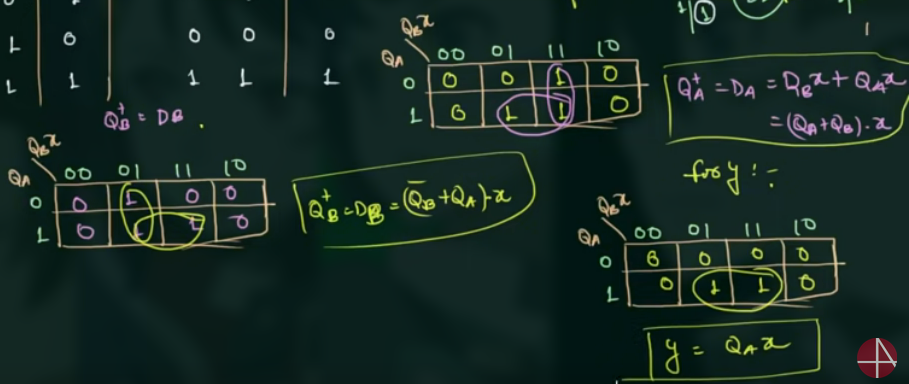 1 0 0 0 0
1 1 1 1 1
Q_B^+ = D_B .
Q_B x
Q_A 00 01 11 10
0 0 0 1 0
1 0 1 1 0
Q_A^+ = D_A = Q_B x + Q_A x
= (Q_A + Q_B) . x
Q_B x
Q_A 00 01 11 10
0 0 1 0 0
1 0 1 1 0
Q_B^+ = D_B = (Q̅_B + Q_A) . x
for y :-
Q_B x
Q_A 00 01 11 10
0 0 0 0 0
1 0 1 1 0
y = Q_A x